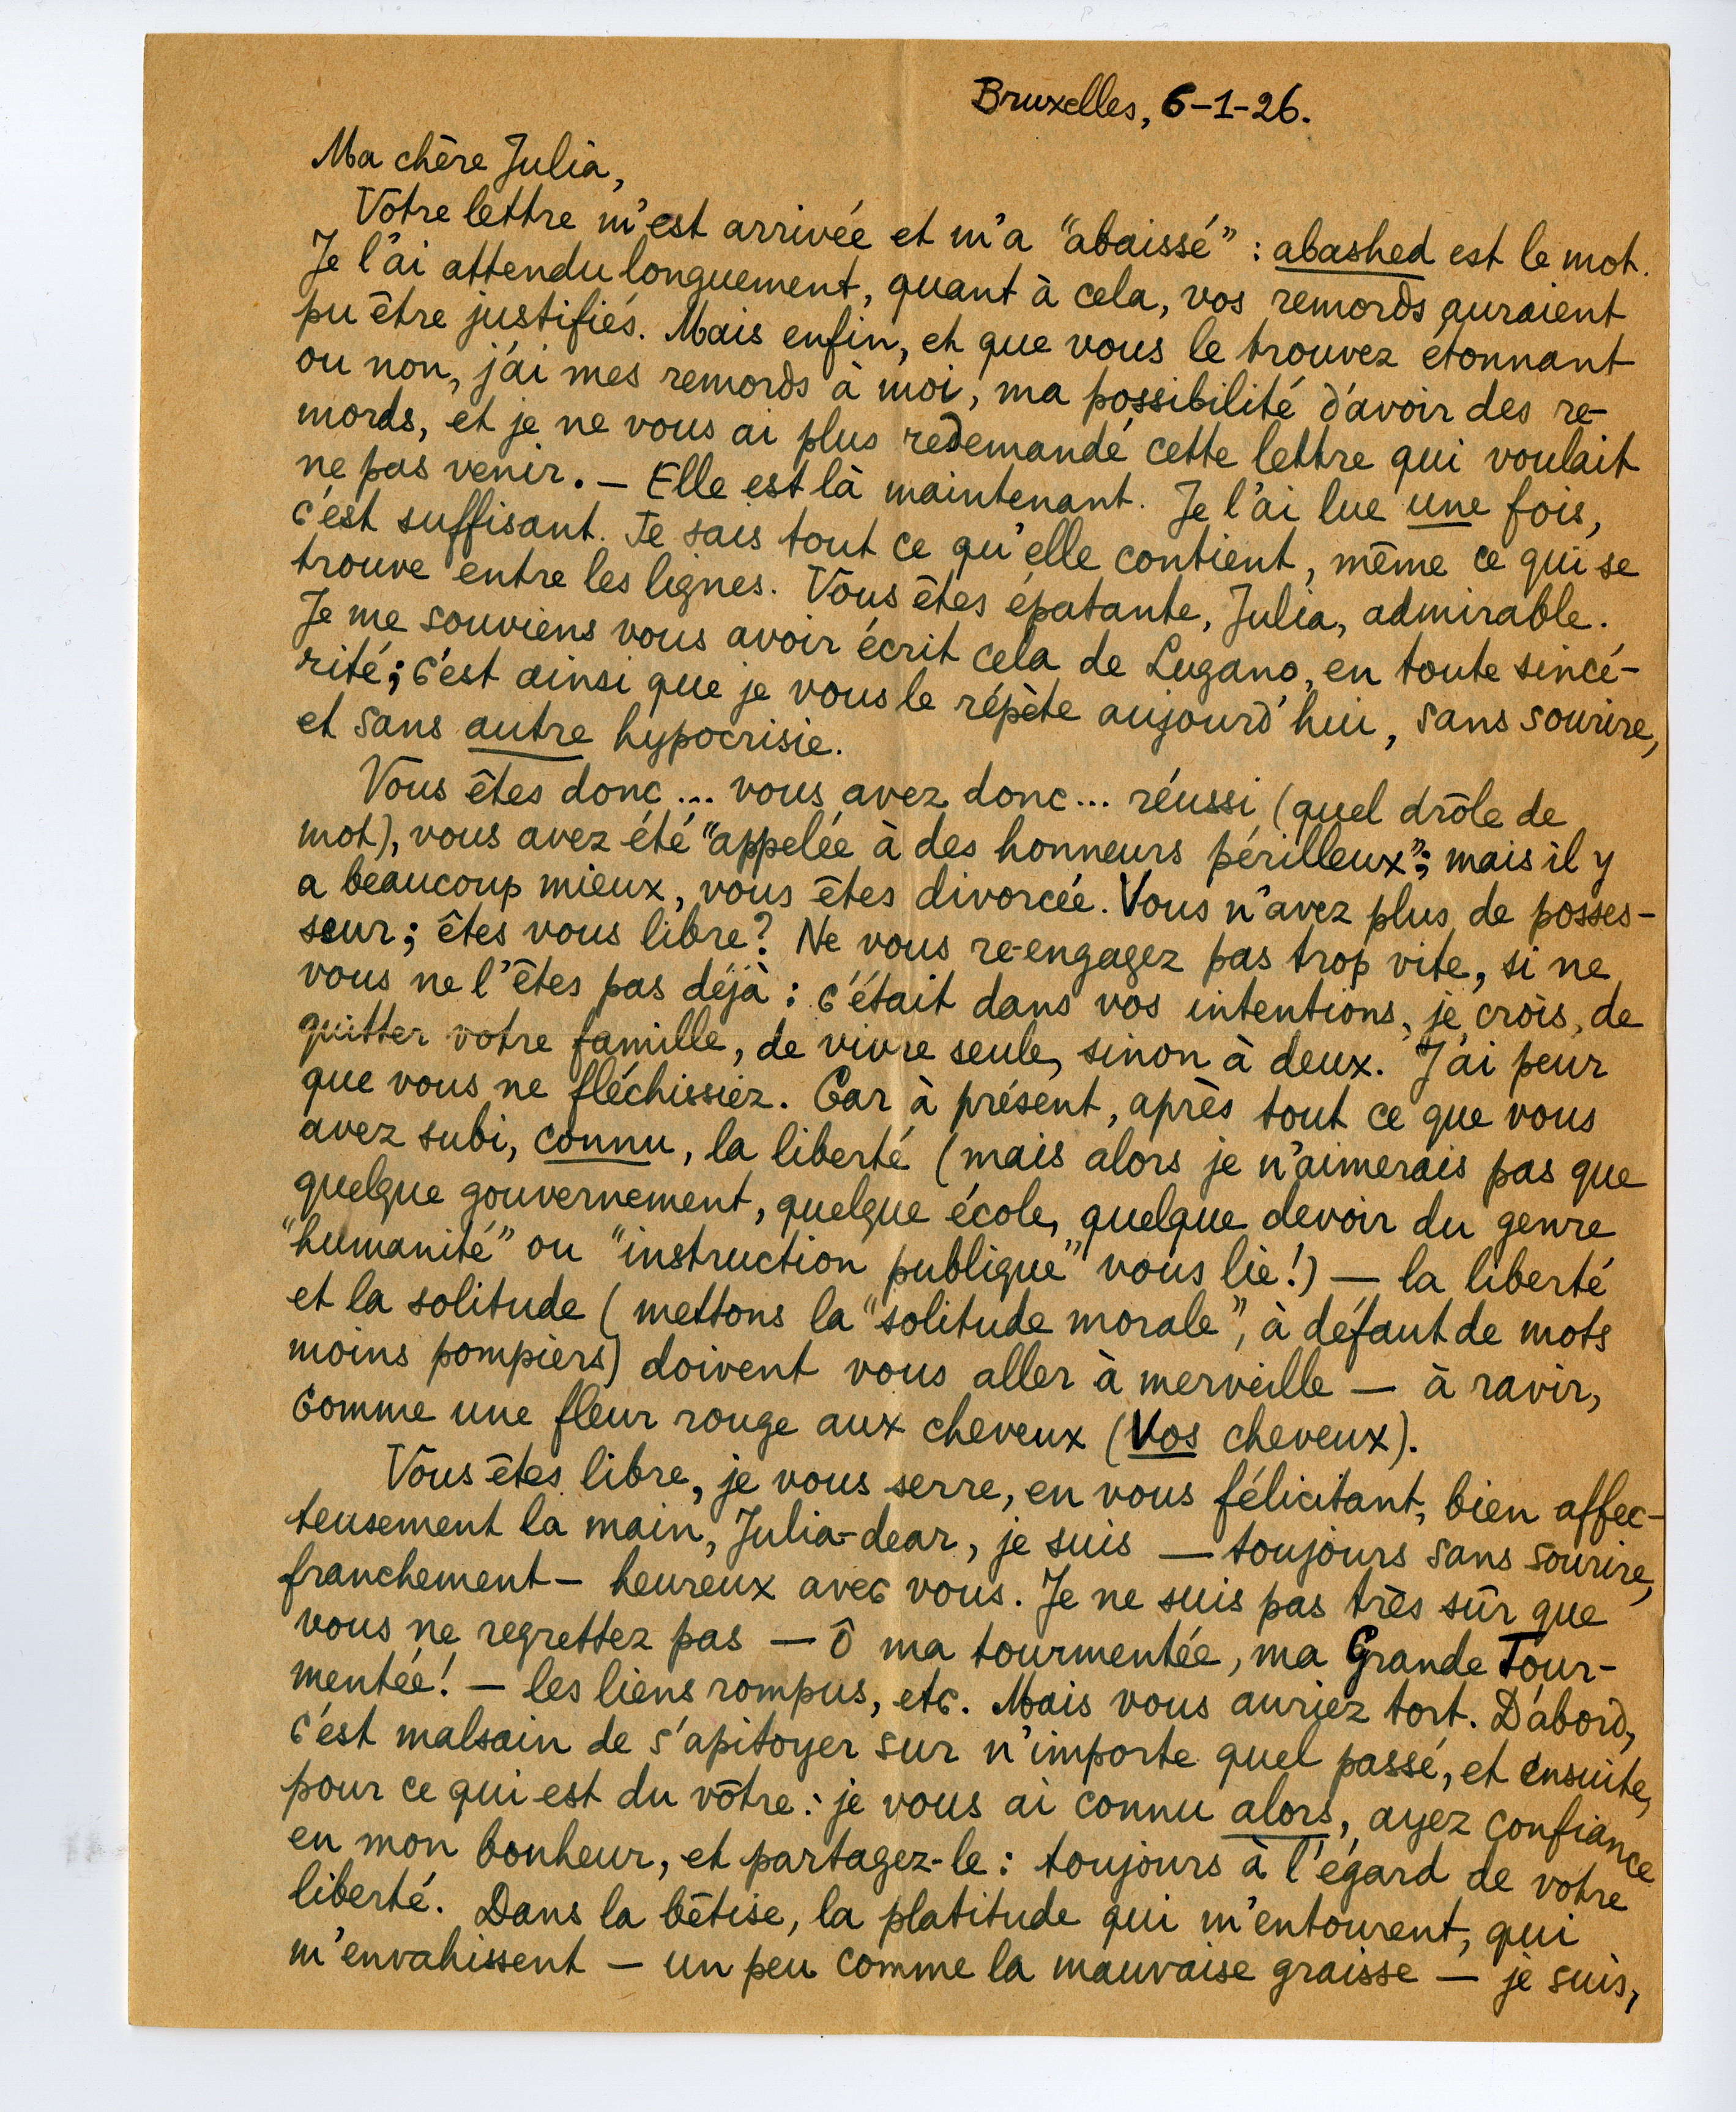 Bruxelles, 6-1-26.
Ma chère Julia,
Vôtre lettre m'est arrivée et m'a "abaissé" : abashed est le mot.
Je l'ai attendu longuement, quant à cela, vos remords auraient
pu être justifiés. Mais enfin, et que vous le trouvez étonnant
ou non, j'ai mes remords à moi, ma possibilité d'avoir des re-
mords, et je ne vous ai plus redemandé cette lettre qui voulait
ne pas venir. — Elle est là maintenant. Je l'ai lue une fois,
c'est suffisant. Je sais tout ce qu'elle contient, même ce qui se
trouve entre les lignes. Vous êtes épatante, Julia, admirable.
Je me souviens vous avoir écrit cela de Lugano, en toute sincé-
rité; c'est ainsi que je vous le répète aujourd'hui, sans sourire,
et sans autre hypocrisie.
Vous êtes donc... vous avez donc... réussi (quel drôle de
mot), vous avez été "appelée à des honneurs périlleux"; mais il y
a beaucoup mieux, vous êtes divorcée. Vous n'avez plus de posses-
seur; êtes vous libre? Ne vous re-engagez pas trop vite, si ne
vous ne l'êtes pas déjà : c'était dans vos intentions, je crois, de
quitter votre famille, de vivre seule, sinon à deux. J'ai peur
que vous ne fléchissiez. Car à présent, après tout ce que vous
avez subi, connu, la liberté (mais alors je n'aimerais pas que
quelque gouvernement, quelque école, quelque devoir du genre
"humanité" ou "instruction publique" vous lie!) — la liberté
et la solitude (mettons la "solitude morale", à défaut de mots
moins pompiers) doivent vous aller à merveille — à ravir,
comme une fleur rouge aux cheveux (Vos cheveux).
Vous êtes libre, je vous serre, en vous félicitant, bien affec-
teusement la main, Julia-dear, je suis — toujours sans sourire,
franchement — heureux avec vous. Je ne suis pas très sûr que
vous ne regrettez pas — ô ma tourmentée, ma Grande Tour-
mentée! — les liens rompus, etc. Mais vous auriez tort. D'abord,
c'est malsain de s'apitoyer sur n'importe quel passé, et ensuite,
pour ce qui est du vôtre : je vous ai connu alors, ayez confiance
en mon bonheur, et partagez-le : toujours à l'égard de votre
liberté. Dans la bêtise, la platitude qui m'entourent, qui
m'envahissent — un peu comme la mauvaise graisse — je suis,